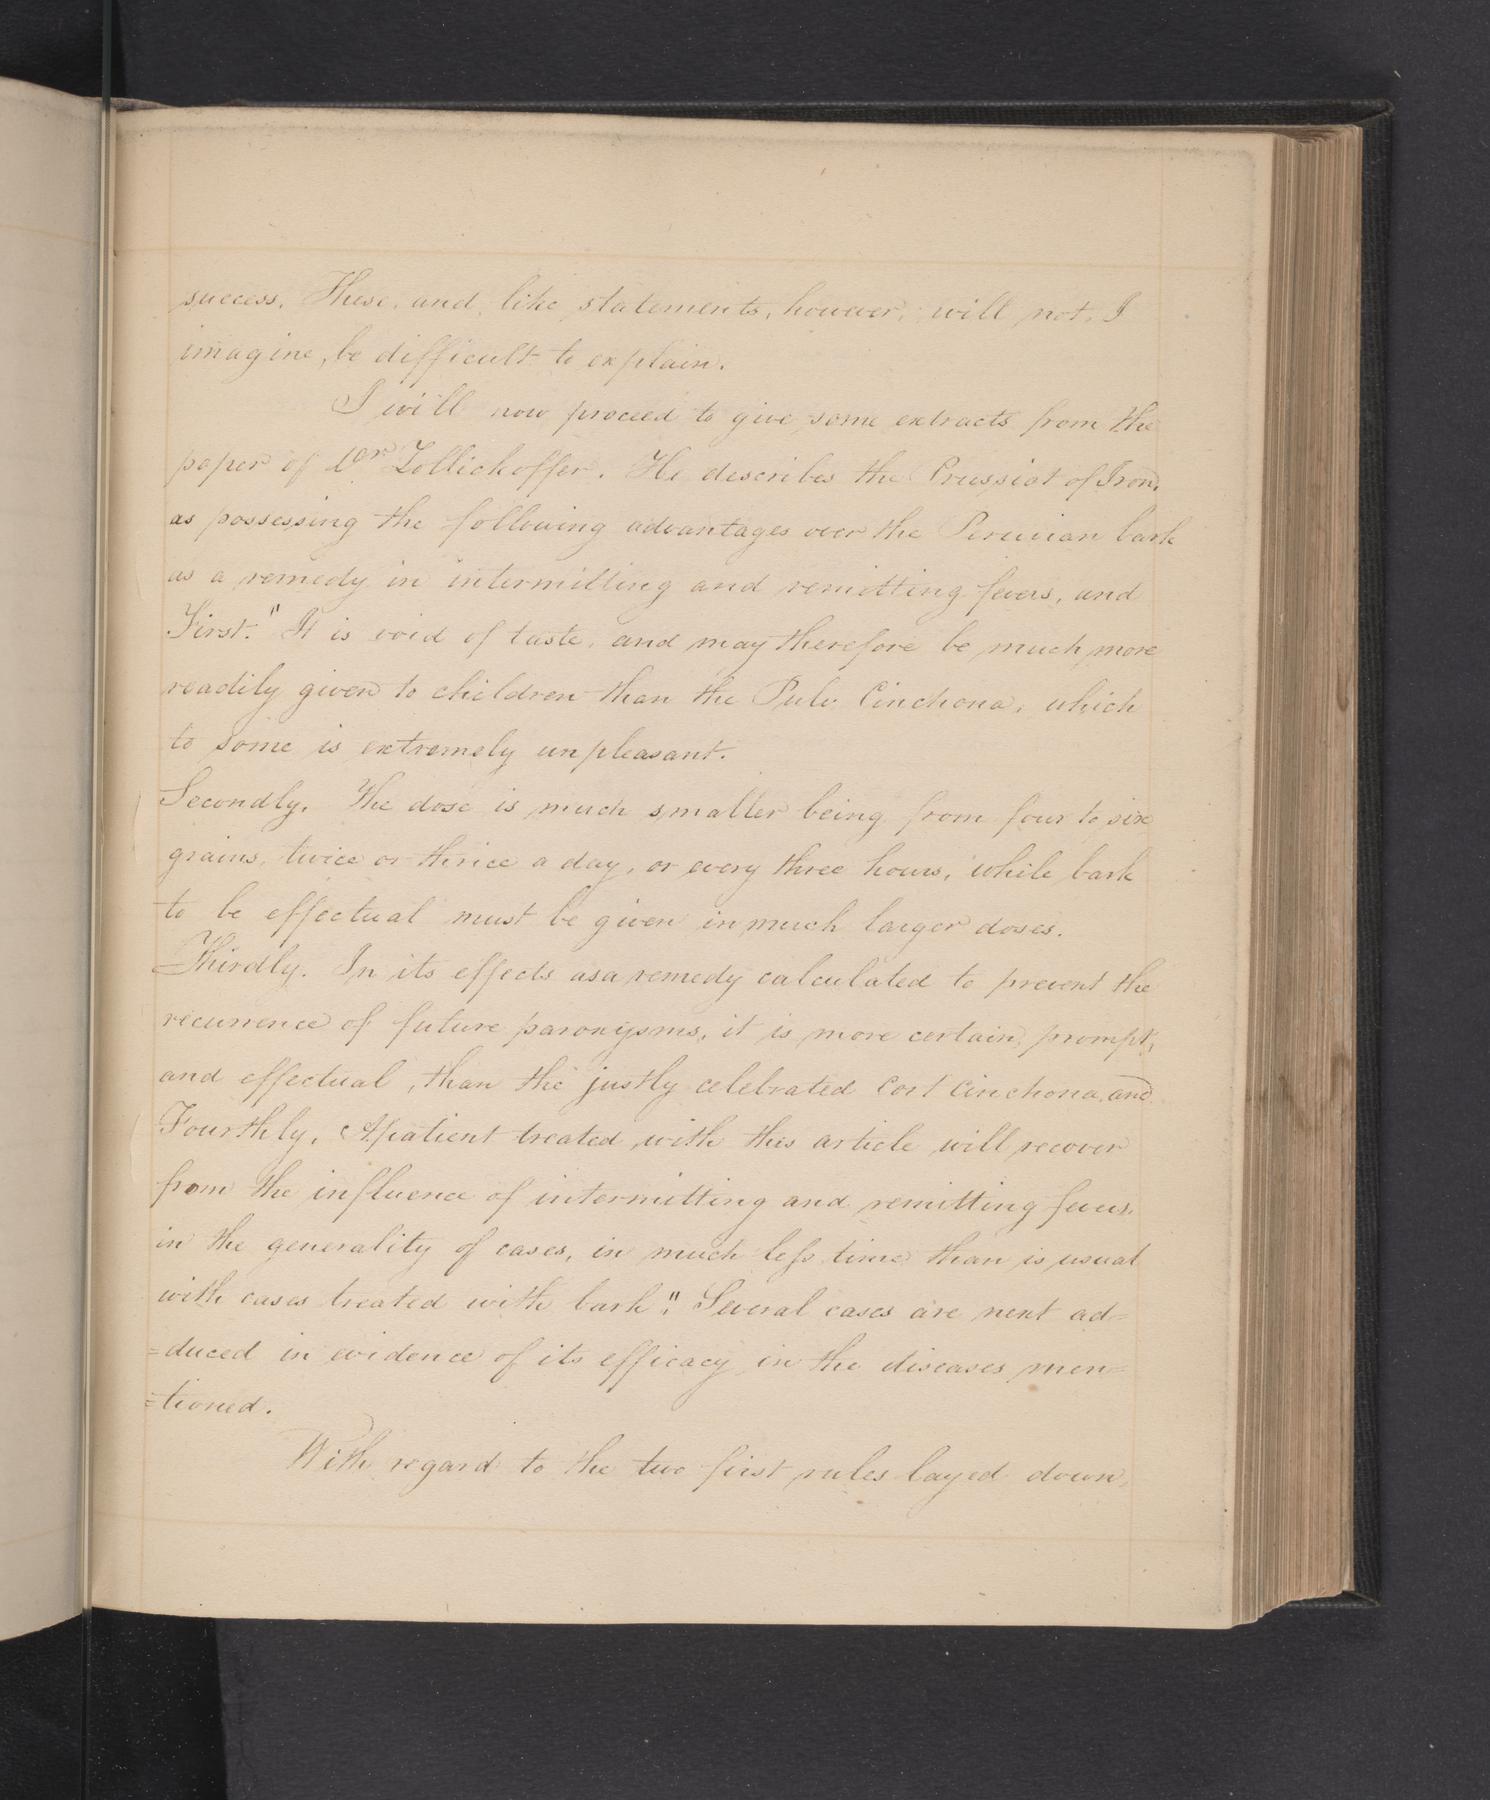 success. These, and like statements, however, will not, I
imagine, be difficult to explain.
I will now proceed to give some extracts from the
paper of Dr Zollickoffer. He describes the Prussiat of Iron,
as possessing the following advantages over the Peruvian bark
as a remedy in intermitting and remitting fevers, and
First." It is void of taste, and may therefore be much more
readily given to children than the Pulv. Cinchona, which
to some is extremely unpleasant.
Secondly. The dose is much smaller being from four to six
grains, twice or thrice a day, or every three hours, while bark
to be effectual must be given in much larger doses.
Thirdly. In its effects as a remedy calculated to prevent the
recurrence of future paroxysms, it is more certain, prompt,
and effectual, than the justly celebrated Cort Cinchona, and
Fourthly, A patient treated with this article will recover
from the influence of intermitting and remitting fevers,
in the generality of cases, in much less time than is usual
with cases treated with bark." Several cases are next ad=
=duced in evidence of its efficacy in the diseases men=
=tioned.
With regard to the two first rules layed down,